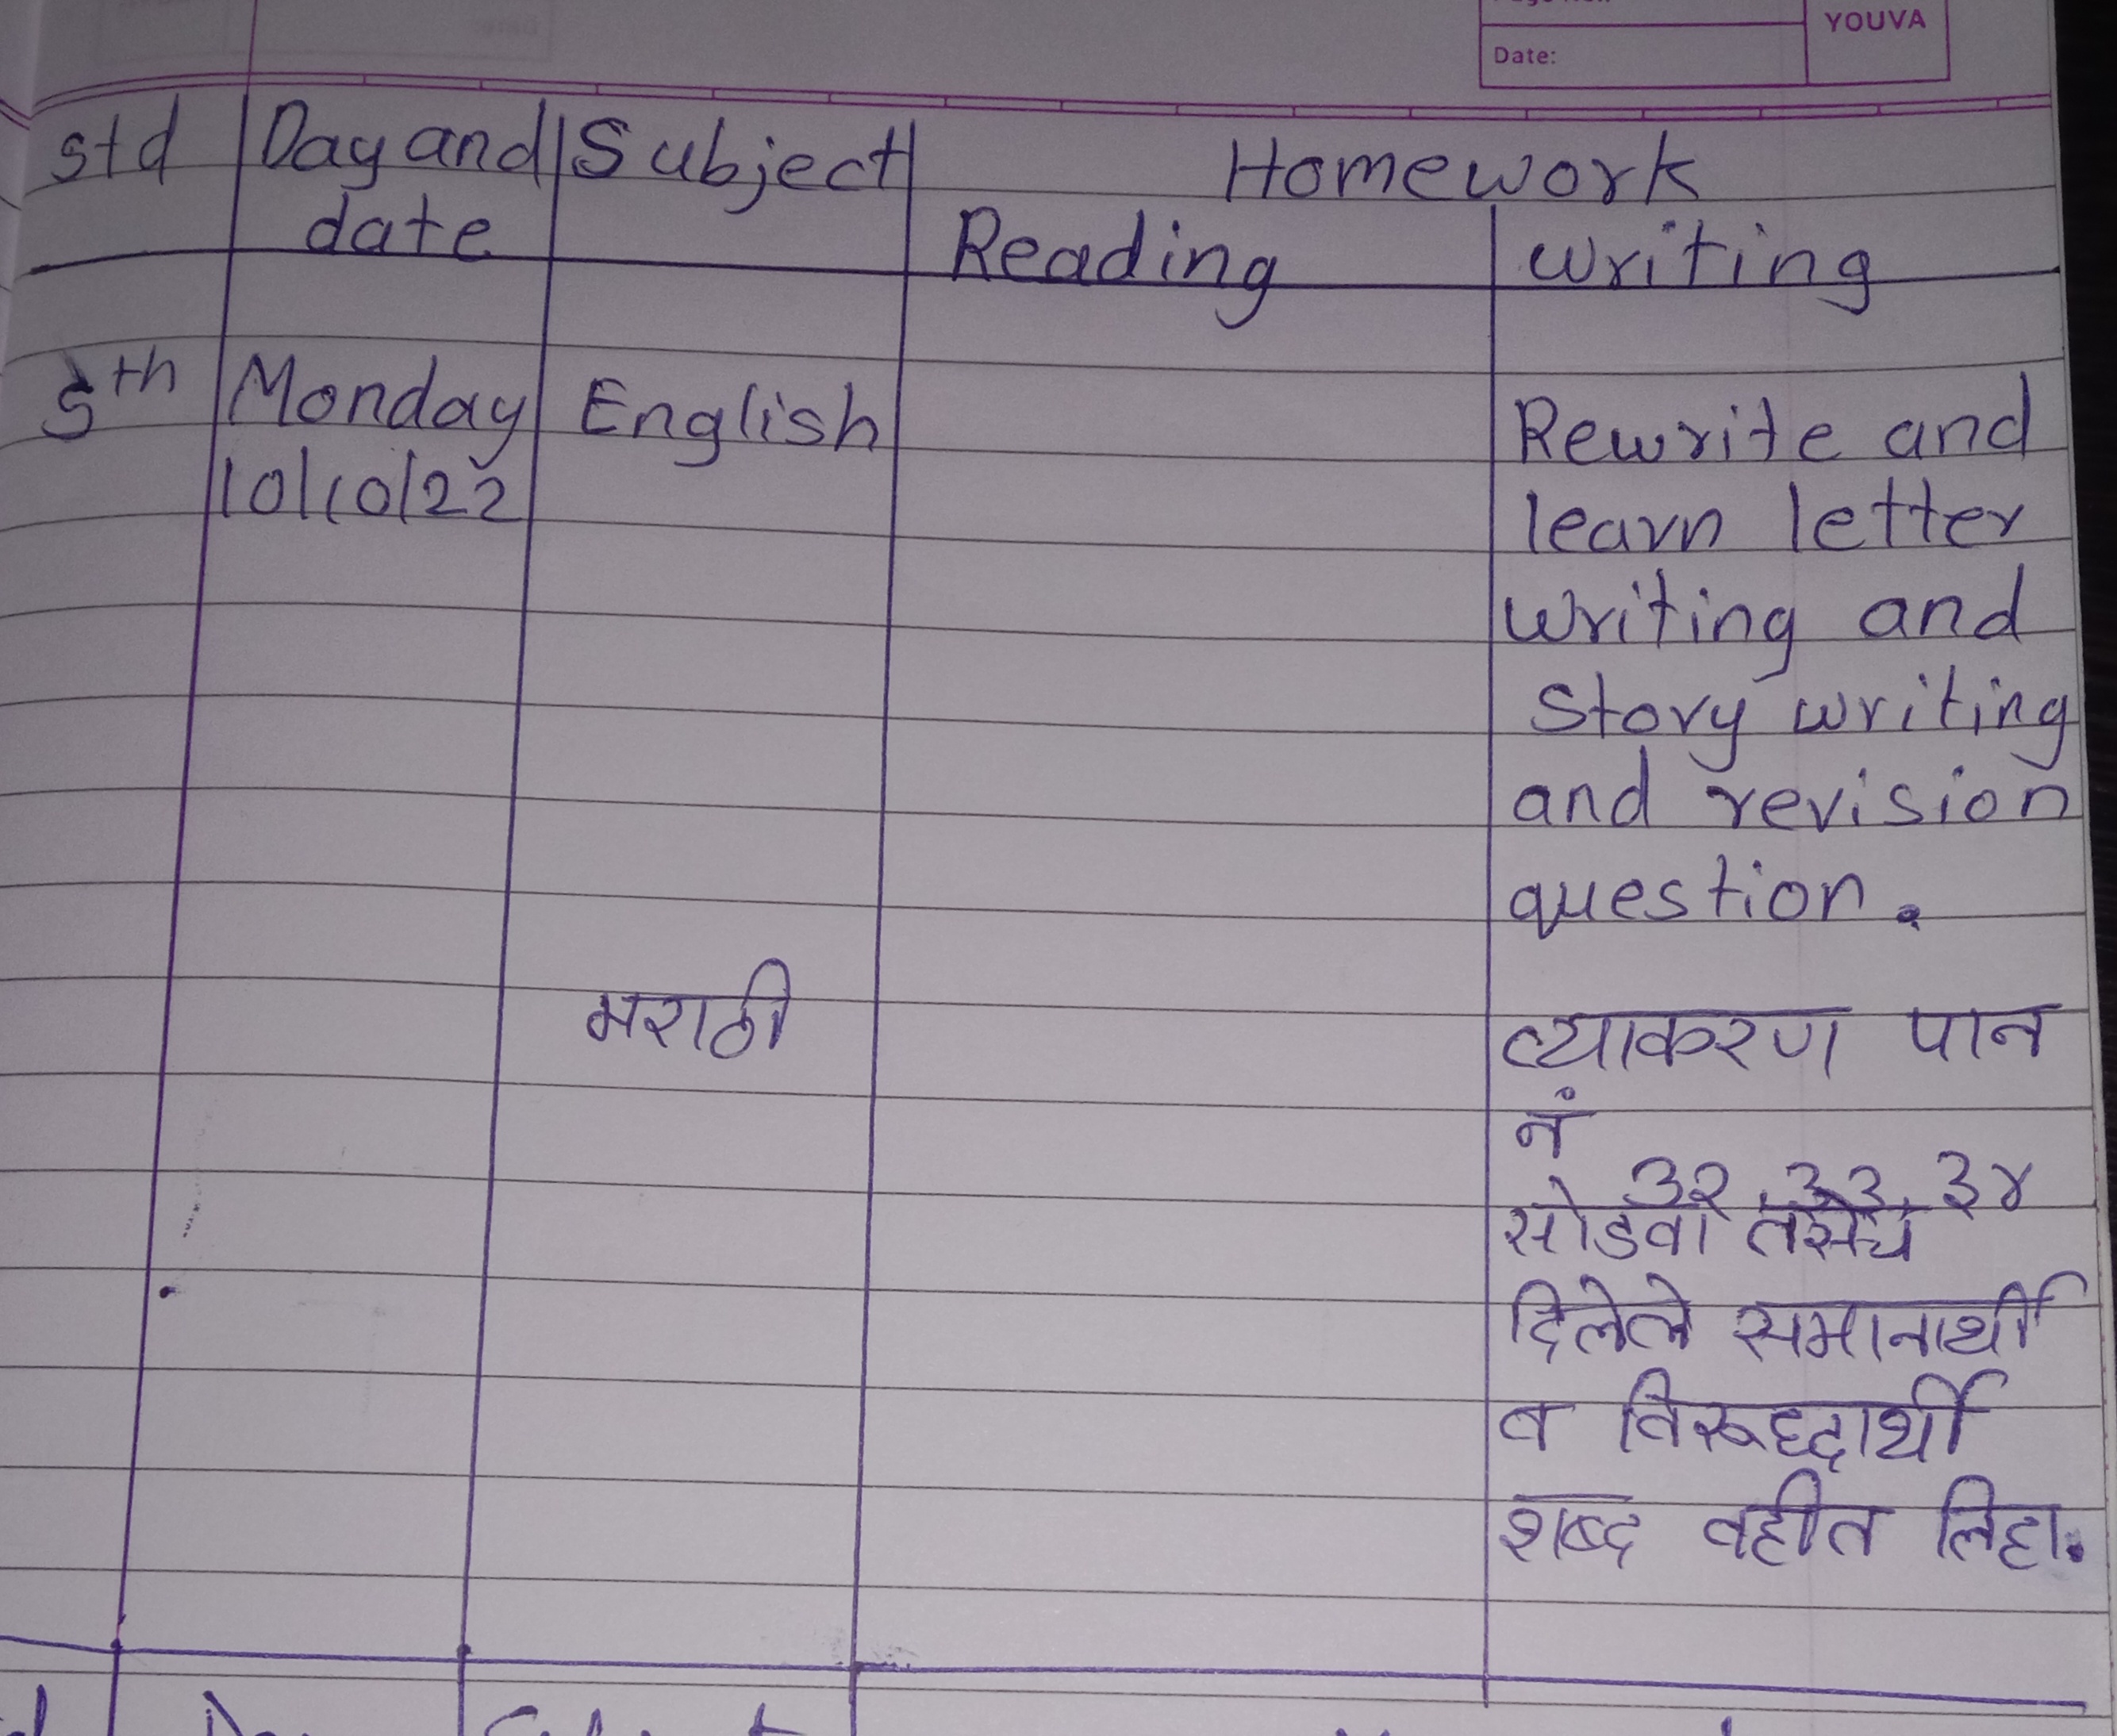 YOUVA
Date:
std Day and Subject Homework
date Reading writing
5th Monday English Rewrite and
10/10/22 learn letter
writing and
Story writing
and revision
question.
मराठी व्याकरण पान
नं
३२, ३३, ३४
सोडवा तसेच
दिलेले समानार्थी
व विरूद्धार्थी
शब्द वहीत लिहा.